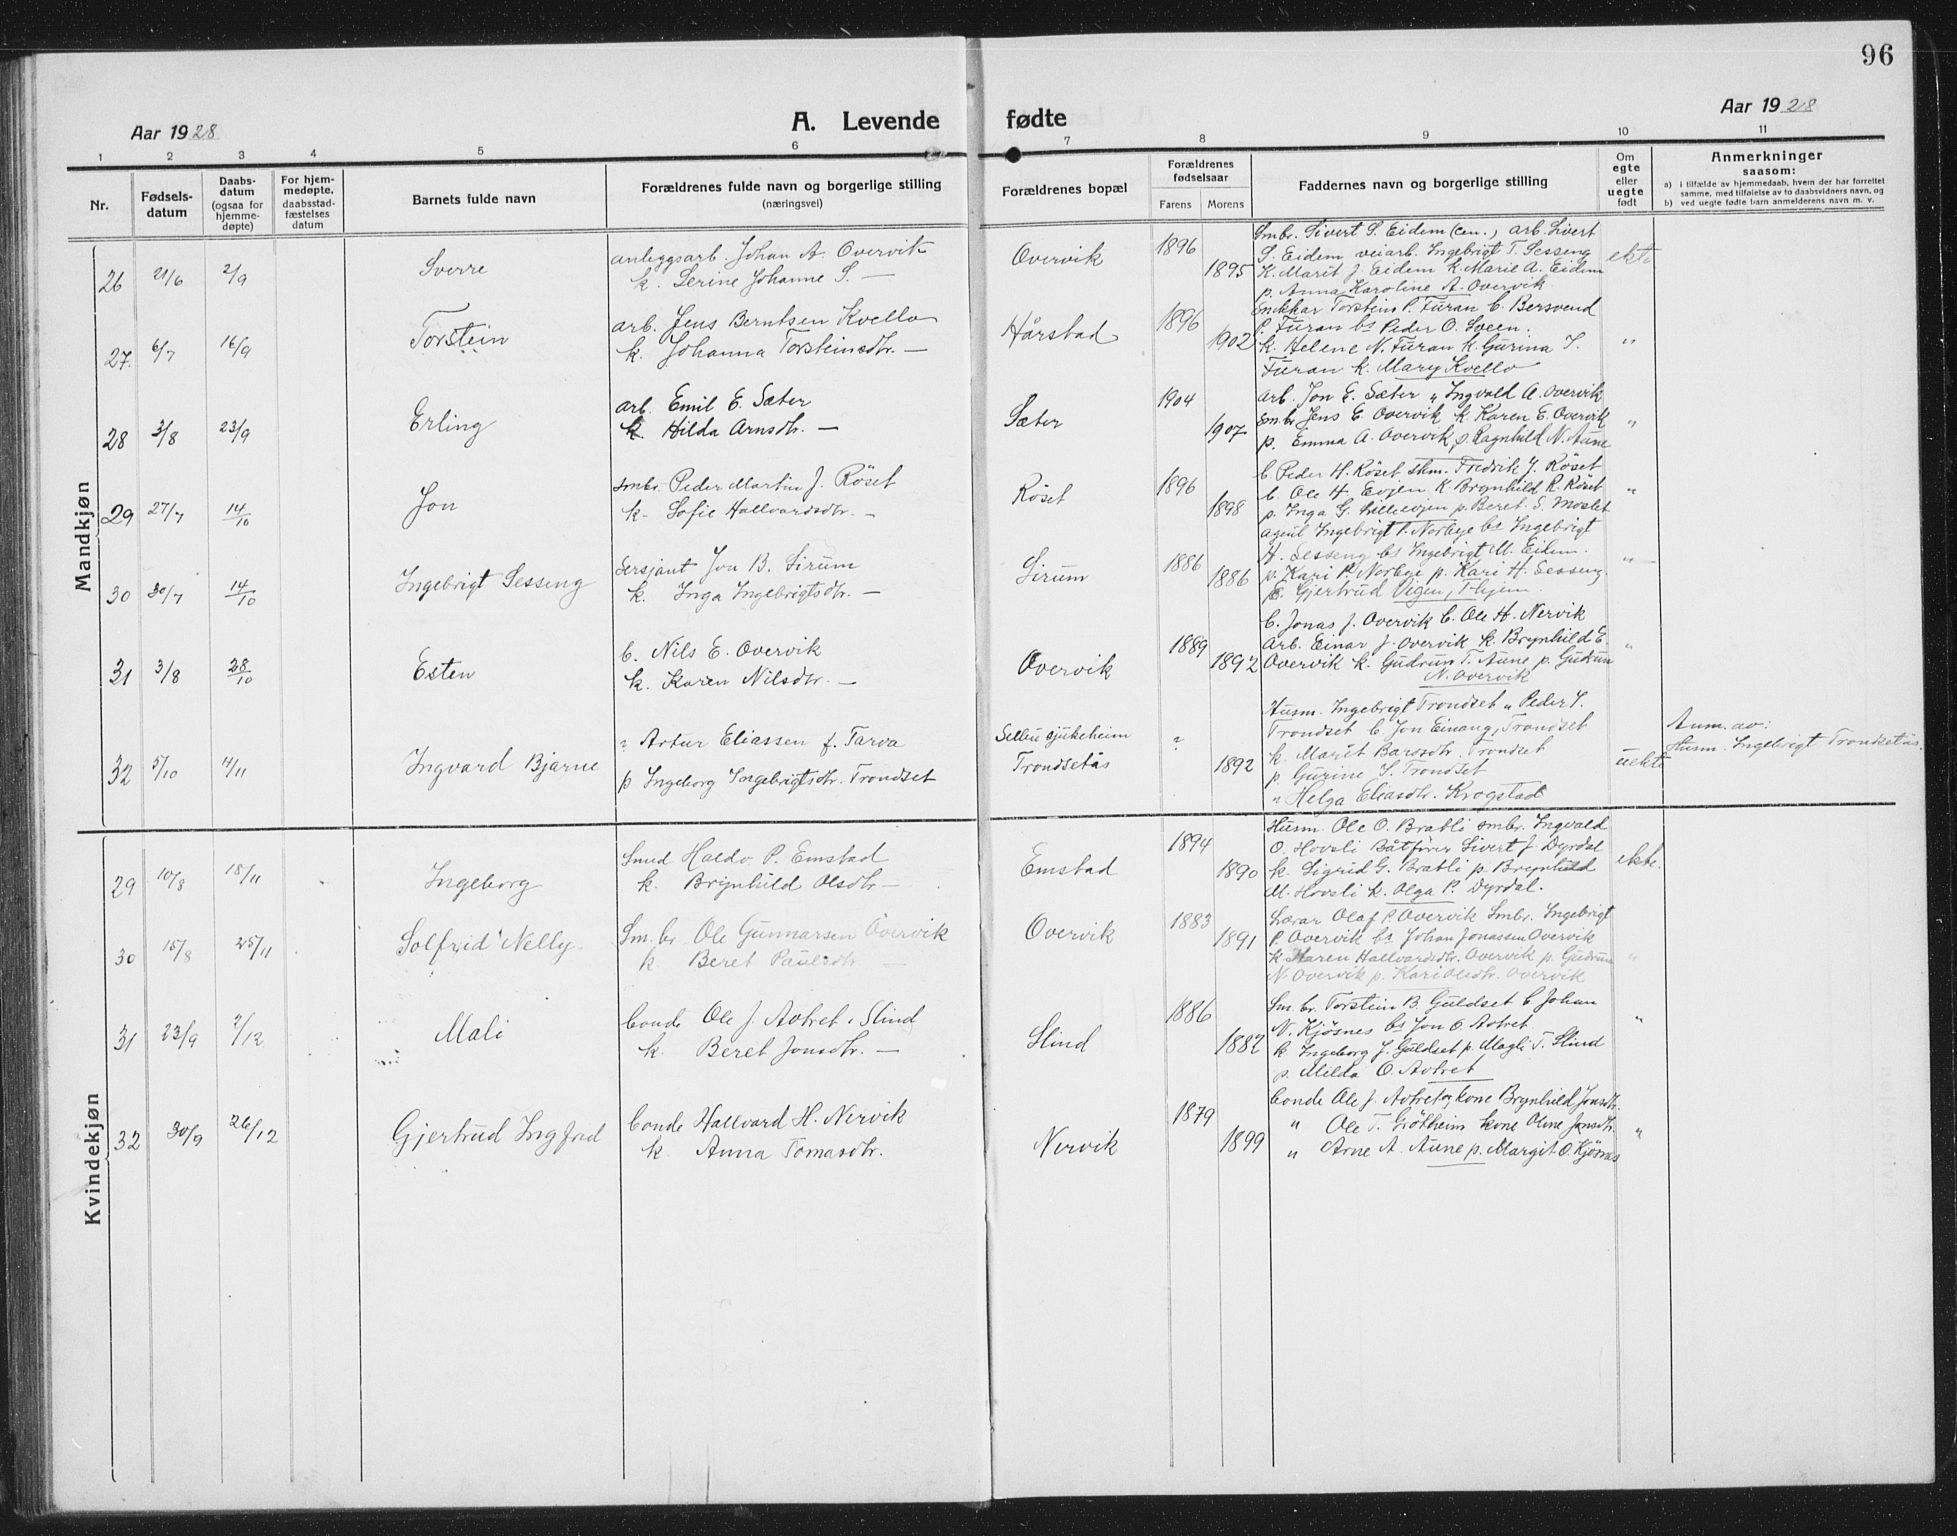 96
Aar 1928
A. Levende
fødte
Aar 1928
1 2 3 4 5 6 7 8 9 10 11
Nr.
Fødsels-
datum
Daabs-
datum
(ogsaa for
hjemme-
døpte)
For hjem-
medøpte,
daabsstad-
fæstelses
datum
Barnets fulde navn
Forældrenes fulde navn og borgerlige stilling
(næringsvei)
Forældrenes bopæl
Forældrenes
fødselsaar
Farens Morens
Faddernes navn og borgerlige stilling
Om
egte
eller
uegte
født
Anmerkninger
saasom:
a) i tilfælde av hjemmedaab, hvem der har forrettet
samme, med tilføielse av to daabsvidners navn, og
b) ved uegte fødte barn anmelderens navn m. v.
Mandkjøn
26 21/6 2/9 Sverre
anleggsarb. Johan A. Overvik
k. Serine Johanne S. —
Overvik 1896 1895
Smbr. Sivert S. Eidem (sen.) arb. Sivert
S. Eidem veiarb. Ingebrigt T. Sesseng
K. Marit J. Eidem k. Marie A. Eidem
p. Anna Karoline A. Overvik
ekte
27. 6/7 16/9 Torstein
arb. Jens Berntsen Kvello
k. Johanna Torsteinsdtr. —
Hårstad 1896 1902
Snekkar Torstein P. Furan b. Bersvend
P. Furan bs Peder O. Sveen.
k. Helene N. Furan k. Gurina T.
Furan k. Mary Kvello
"
28 3/8 23/9 Erling
arb. Emil E. Sæter
k. Hilda Arnsdtr. —
Sæter 1904 1907
arb. Jon E. Sæter " Ingvald A. Overvik
smbr Jens E. Overvik k Karen E. Overvik
p. Emma A. Overvik p. Ragnhild N. Aune
"
29 27/7 14/10 Jon
smbr. Peder Martin J. Röset
k. Sofie Hallvardsdtr. —
Röset 1896 1898
b. Peder H. Röset skm. Fredrik J. Röset
b. Ole H. Evjen K Brynhild R. Röset
p. Inga G. Lilleevjen p. Beret S. Moslet
"
30 30/7 14/10 Ingebrigt Sesseng
Sersjant Jon B. Sirum
k. Inga Ingebrigtsdtr. —
Sirum 1886 1886
agent Ingebrigt P. Norbye bs Ingebrigt
H. Sesseng bs Ingebrigt M. Eidem.
p. Kari P. Norbye p. Kari H. Sesseng.
p. Gjertrud Vigen, Thjem.
"
31 3/8 28/10 Esten
b. Nils E. Overvik
k. Karen Nilsdtr. —
Overvik 1889 1892
b. Jonas J. Overvik b. Ole H. Nervik
Arb. Einar J. Overvik k. Brynhild E.
Overvik k. Gudrun T. Aune p. Gudrun
N. Overvik
"
32 5/10 4/11 Ingvard Bjarne
? Artur Eliassen f. Tarva
p Ingeborg Ingebrigtsdtr. Trondset
Selbu sjukeheim
Trondsetås
? 1892
Husm. Ingebrigt Trondset " Peder I.
Trondset b. Jon Einang, Trondset
k. Marit Bardsdtr. Trondset
p Gurine I. Trondset
" Helga Eliasdtr. Krogstad
uekte
Anm. av:
Husm. Ingebrigt Trondsetås.
Kvindekjøn
29 10/8 18/11 Ingeborg
Smed Haldo P. Emstad
k. Brynhild Olsdtr —
Emstad 1894 1890
Husm. Ole O. Bratli smbr. Ingvald
O. Hovsli Båtfører Sivert J. Dyrdal
k. Sigrid G. Bratli p. Brynhild
M. Hovsli k. Olga P. Dyrdal.
ekte.
30 15/8 25/11 Solfrid Nelly
Sm. br. Ole Gunnarsen Overvik
k. Beret Paulsdtr. —
Overvik 1883 1891
Lærar Olaf P. Overvik Smbr. Ingebrigt
P. Overvik bs Johan Jonassen Overvik
k Karen Hallvardsdtr. Overvik p. Gudrun
N. Overvik p. Kari Olsdtr. Overvik
"
31 23/9 2/12 Mali
bonde Ole J. Avtret, Slind
k. Beret Jonsdtr. —
Slind 1886 1882
Sm br. Torstein B. Guldset b Johan
N. Kjösnes bs Jon O. Avtret
k. Ingeborg J. Guldset p. Magli T. Slind
p. Milda O. Avtret
"
32 30/9 26/12 Gjertrud Ingfrid
bonde Hallvard H. Nervik
k. Anna Tomasdtr.
Nervik 1879 1899
bonde Ole J. Avtret og kone Brynhild Jonsdtr.
" Ole T. Grötheim kone Oline Jonsdtr.
" Arne A. Aune p. Margit O. Kjösnes
"